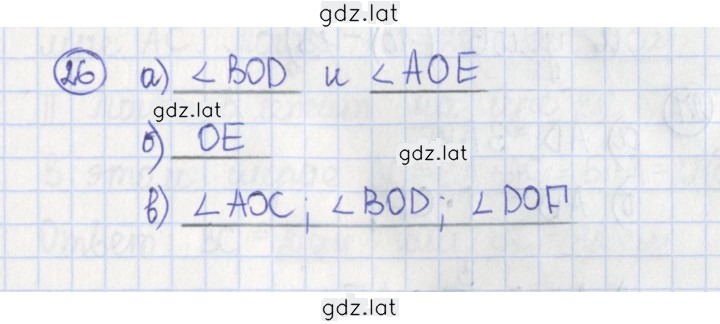 gdz.lat
26 а) ∠BOD и ∠AOE
gdz.lat
б) OE
gdz.lat
в) ∠AOC; ∠BOD; ∠DOF
gdz.lat